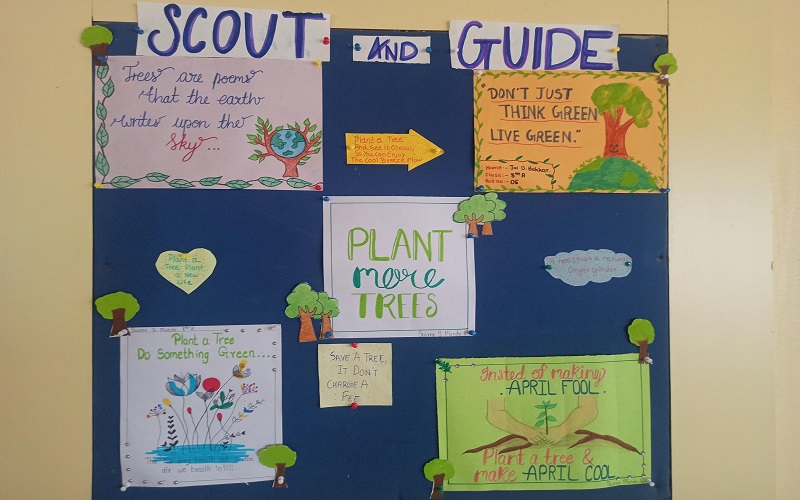 SCOUT AND GUIDE
Trees are poems
that the earth
writes upon the
sky...
Plant a Tree
And see it Grow
So You can Enjoy
The Cool Breeze Flow
"DON'T JUST
THINK GREEN
LIVE GREEN."
Name:-
Class:-
06
PLANT
more
TREES
Plant a
Tree Plant
a new
Life
Plant a Tree
Do Something Green...
air we breath in!!!!
SAVE A TREE,
IT DON'T
CHARGE A
FEE
Insted of making
APRIL FOOL.
Plant a tree &
make APRIL COOL.